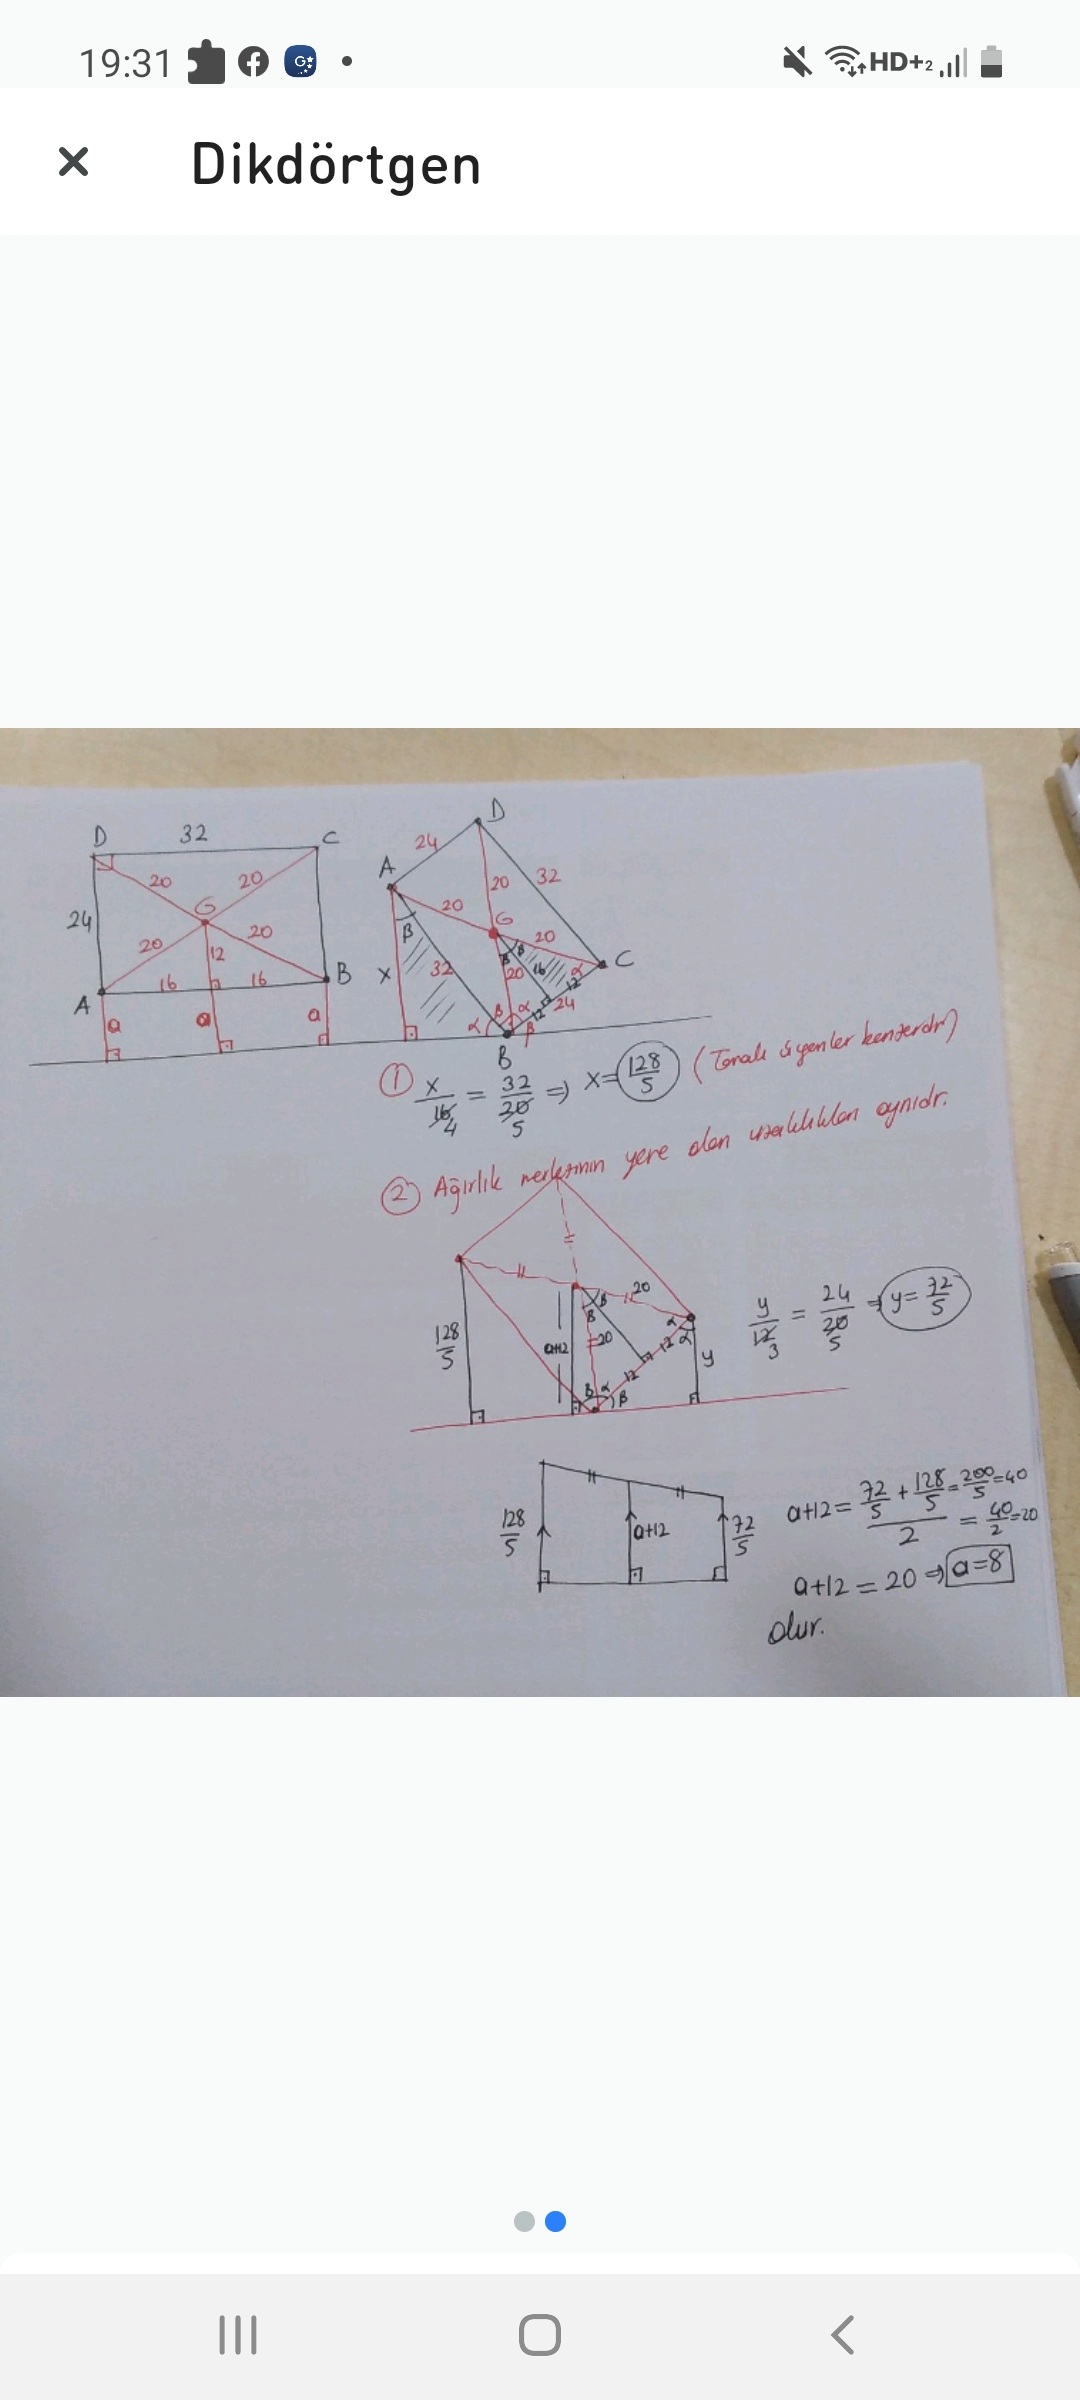 19:31
HD+2
Dikdörtgen
D 32 C
24
20 20
G
20 20
12
16 16
A B
a a a
D
24
A
20 32
20
G
β 20
x 32 β β
20 16 α C
12
24
12
α β α β
B
① x/16 4 = 32/20 5 ⇒ x= 128/5 (Taralı üçgenler benzerdir)
② Ağırlık merkezinin yere olan uzaklıkları aynıdır.
20
β β
128/5 a+12 20 α α
12 12 y
β α β
y/12 3 = 24/20 5 ⇒ y= 72/5
128/5 a+12 72/5
a+12= 72/5 + 128/5 = 200/5 =40
2 = 40/2 =20
a+12 = 20 ⇒ a=8
olur.